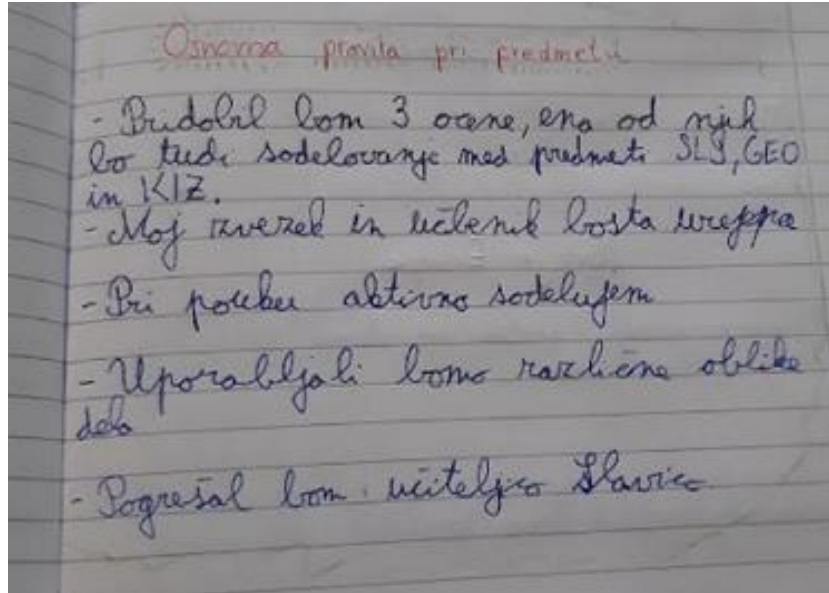 Osnovna pravila pri predmetu
- Pridobil bom 3 ocene, ena od njih
bo tudi sodelovanje med predmeti SLJ, GEO
in KIZ.
- Moj zvezek in učbenik bosta urejena
- Pri pouku aktivno sodelujem
- Uporabljali bomo različne oblike
dela
- Pogrešal bom učiteljico Slavico